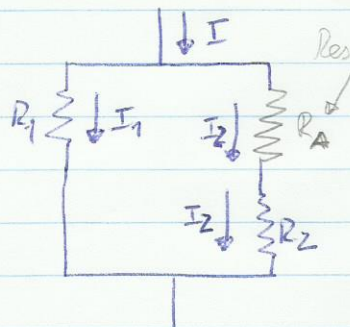 I
Res
R1 I1 I2 RA
I2 R2